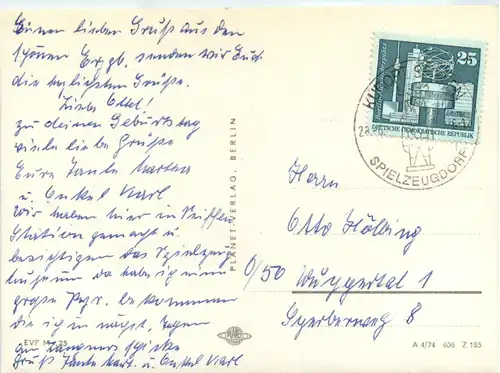 Einen lieben Gruß aus den
schönen Erzgb. senden wir Euch
die herzlichsten Grüße.
Liebe Ottel!
zu deinen Geburtstag
viele liebe Grüße
Eure Tante Martha
u. Onkel Karl
Wir haben hier in Seiffen
Station gemacht u.
besichtigen das Spielzeug
da habe ich eine
große bekommen
die ich Tagen
an
Gruß Tante u. Onkel Karl
EVP M 0,25
PLANET-VERLAG, BERLIN
PLANET
25
DEUTSCHE DEMOKRATISCHE REPUBLIK
KURORT
SPIELZEUGDORF
Herrn
Otto Hölbing
0/50 Wuppertal 1
Sperberweg 8
A 4/74 606 Z 185